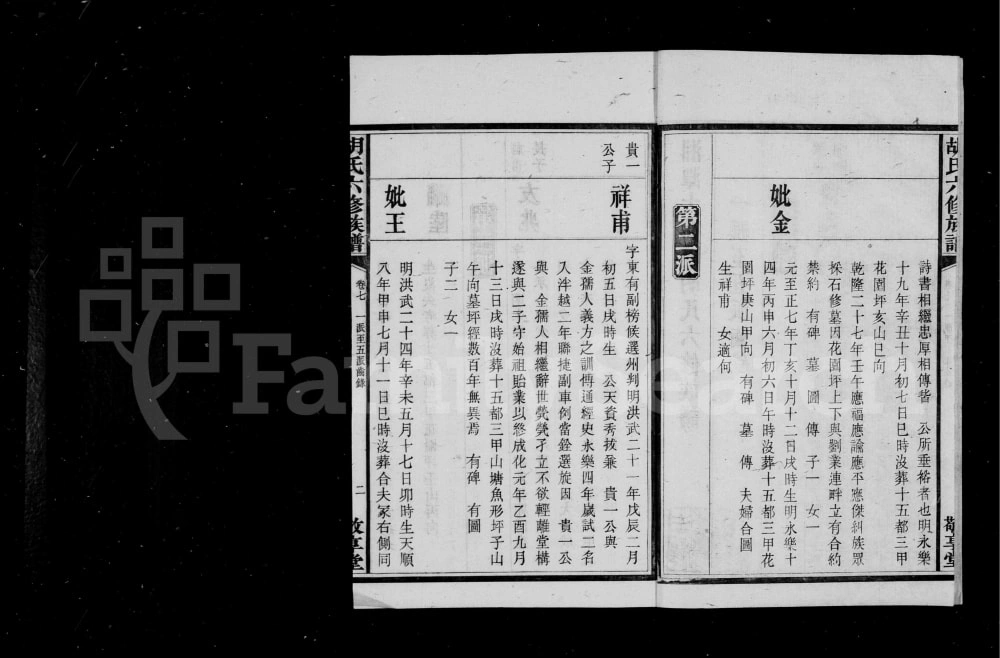 胡氏六修族譜
敬享堂
詩書相繼忠厚相傳皆 公所垂裕者也明永樂
十九年辛丑十月初七日巳時沒葬十五都三甲
花園坪亥山巳向
乾隆二十七年壬午應福應諭應平應傑糾族眾
採石修墓因花園坪上下與劉業連畔立有合約
禁約 有碑 墓 圖 傳 子一 女一
妣金
元至正七年丁亥十月十二日戌時生明永樂十
四年丙申六月初六日午時沒葬十五都三甲花
園坪庚山甲向 有碑 墓 傳 夫婦合圖
生祥甫 女適何
第二派
貴一
公子
祥甫
字東有副榜候選州判明洪武二十一年戊辰二月
初五日戌時生 公天資秀拔兼 貴一公與
金孺人義方之訓博通經史永樂四年歲試二名
入泮越二年聯捷副車例當銓選旋因 貴一公
與 金孺人相繼辭世煢煢孑立不欲輕離堂構
遂與二子守始祖貽業以終成化元年乙酉九月
十三日戌時沒葬十五都三甲山塘魚形坪子山
午向墓坪經數百年無異焉 有碑 有圖
子二 女一
妣王
明洪武二十四年辛未五月十七日卯時生天順
八年甲申七月十一日巳時沒葬合夫冢右側同
胡氏六修族譜
卷七 一派至五派齒錄
二
敬享堂